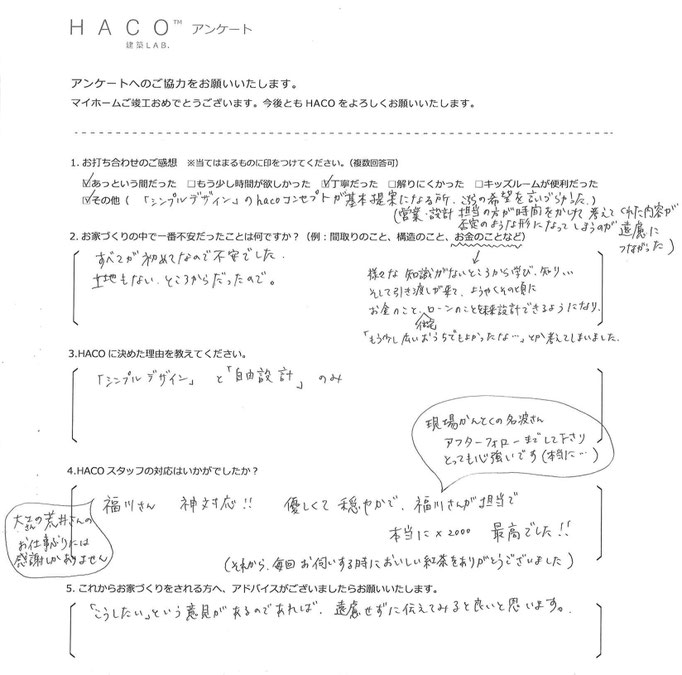 HACO™ アンケート
建築LAB.
アンケートへのご協力をお願いいたします。
マイホームご竣工おめでとうございます。今後とも HACO をよろしくお願いいたします。
1. お打ち合わせのご感想 ※当てはまるものに印をつけてください。（複数回答可）
☑あっという間だった □もう少し時間が欲しかった ☑丁寧だった □解りにくかった □キッズルームが便利だった
☑その他（「シンプルデザイン」のhacoコンセプトが基本提案になる所、こちらの希望を言いづらかった。）
（営業・設計 担当の方が時間をかけて考えてくれた内容が
否定のような形になってしまうのが 遠慮に
つながった）
2. お家づくりの中で一番不安だったことは何ですか？（例：間取りのこと、構造のこと、お金のことなど）
すべてが初めてなので不安でした.
土地もない.ところからだったので。
様々な 知識がないところから学び、知り、、、
そして引き渡しが来て、ようやくその頃に
お金のこと、ローンのことを 設計できるようになり、
「もう少し広いおうちでもよかったな…」とか考えてしまいました.
3.HACO に決めた理由を教えてください。
「シンプルデザイン」 と「自由設計」 のみ
現場かんとくの名波さん
アフターフォローまでして下さり
とっても心強いです(本当に…)
4.HACO スタッフの対応はいかがでしたか？
福川さん 神対応!! 優しくて 穏やかで、福川さんが担当で
本当に×2000 最高でした!!
（それから、毎回 お伺いする時においしい紅茶をありがとうございました）
大工さんの荒井さんの
お仕事ぶりには
感謝しかありません
5. これからお家づくりをされる方へ、アドバイスがございましたらお願いいたします。
「こうしたい」という意見があるのであれば、遠慮せずに伝えてみると良いと思います。